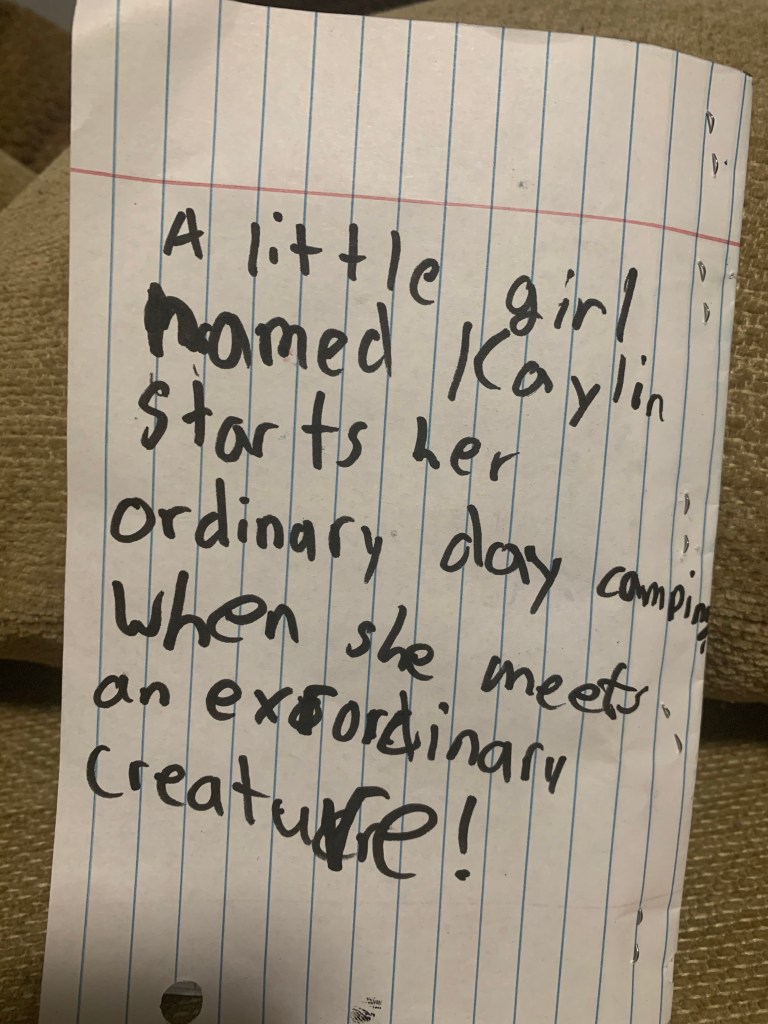 A little girl
named Kaylin
starts her
ordinary day camping
when she meets
an exrordinary
creature!